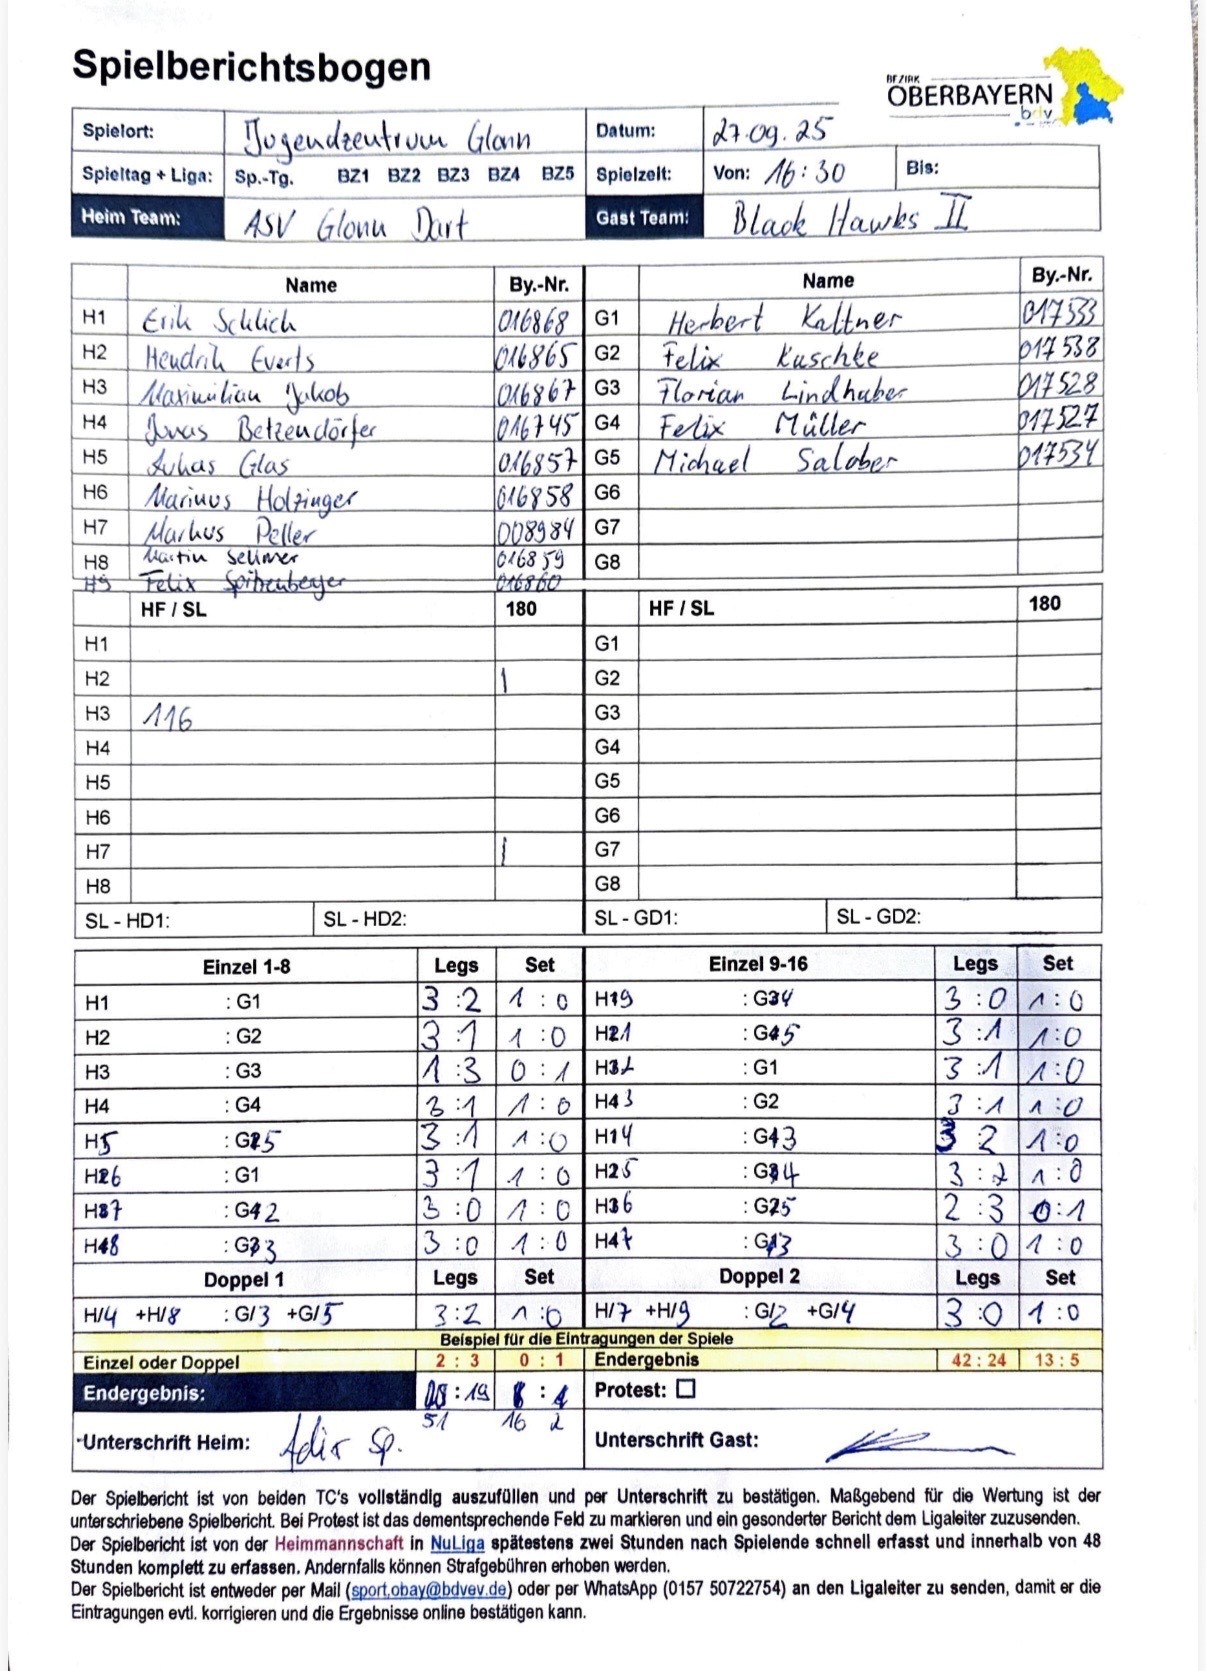 Spielberichtsbogen
BEZIRK
OBERBAYERN
bdv
Spielort: Jugendzentrum Glonn Datum: 27.09.25
Spieltag + Liga: Sp.-Tg. BZ1 BZ2 BZ3 BZ4 BZ5 Spielzeit: Von: 16:30 Bis:
Heim Team: ASV Glonn Dart Gast Team: Black Hawks II
Name By.-Nr. Name By.-Nr.
H1 Erik Schlich 016868 G1 Herbert Kaltner 017533
H2 Hendrik Everts 016865 G2 Felix Kuschke 017538
H3 Maximilian Jakob 016867 G3 Florian Lindhuber 017528
H4 Jonas Betzendörfer 016745 G4 Felix Müller 017527
H5 Lukas Glas 016857 G5 Michael Salober 017534
H6 Marinus Holzinger 016858 G6
H7 Markus Peller 008984 G7
H8 Martin Sellmer 016859 G8
H9 Felix Spitzenberger 016860
HF / SL 180 HF / SL 180
H1 G1
H2 | G2
H3 116 G3
H4 G4
H5 G5
H6 G6
H7 | G7
H8 G8
SL - HD1: SL - HD2: SL - GD1: SL - GD2:
Einzel 1-8 Legs Set Einzel 9-16 Legs Set
H1 : G1 3 : 2 1 : 0 H9 : G4 3 : 0 1 : 0
H2 : G2 3 : 1 1 : 0 H1 : G5 3 : 1 1 : 0
H3 : G3 1 : 3 0 : 1 H2 : G1 3 : 1 1 : 0
H4 : G4 3 : 1 1 : 0 H3 : G2 3 : 1 1 : 0
H5 : G5 3 : 1 1 : 0 H4 : G3 3 2 1 : 0
H6 : G1 3 : 1 1 : 0 H5 : G4 3 : 2 1 : 0
H7 : G2 3 : 0 1 : 0 H6 : G5 2 : 3 0 : 1
H8 : G3 3 : 0 1 : 0 H7 : G3 3 : 0 1 : 0
Doppel 1 Legs Set Doppel 2 Legs Set
H/4 +H/8 : G/3 +G/5 3:2 1:0 H/7 +H/9 : G/2 +G/4 3:0 1:0
Beispiel für die Eintragungen der Spiele
Einzel oder Doppel 2 : 3 0 : 1 Endergebnis 42 : 24 13 : 5
Endergebnis: : 19 : Protest:
51 16 2
Unterschrift Heim: Sp. Unterschrift Gast:
Der Spielbericht ist von beiden TC's vollständig auszufüllen und per Unterschrift zu bestätigen. Maßgebend für die Wertung ist der
unterschriebene Spielbericht. Bei Protest ist das dementsprechende Feld zu markieren und ein gesonderter Bericht dem Ligaleiter zuzusenden.
Der Spielbericht ist von der Heimmannschaft in NuLiga spätestens zwei Stunden nach Spielende schnell erfasst und innerhalb von 48
Stunden komplett zu erfassen. Andernfalls können Strafgebühren erhoben werden.
Der Spielbericht ist entweder per Mail (sport.obay@bdvev.de) oder per WhatsApp (0157 50722754) an den Ligaleiter zu senden, damit er die
Eintragungen evtl. korrigieren und die Ergebnisse online bestätigen kann.